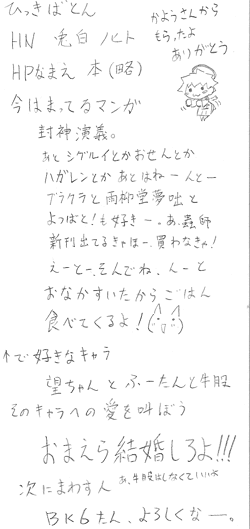 ひっきばとん
かようさんから
もらったよ
ありがとう
HN 兎白ノヒト
HPなまえ 本(略)
今はまってるマンガ
封神演義。
あと シグルイとかおせんとか
ハガレンとか あとはねーんとー
ブラクラと 両柳堂夢咄と
よつばと!も好きー。あ、蟲師
新刊出てるきゃほー、買わなきゃ!
えーとー、そんでね、んーと
おなかすいたからごはん
食べてくるよ!
↑で好きなキャラ
望ちゃんとふーたんと牛股
そのキャラへの愛を叫ぼう
おまえら結婚しろよ!!!
あ、牛股はしなくていいや
次にまわす人
BK6たん、よろしくなー。